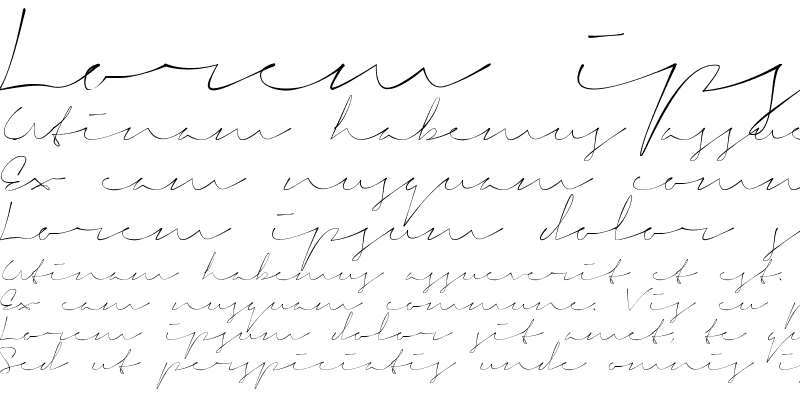 Lorem ips
Utinam habemus assue
Ex cam nusquam comm
Lorem ipsum dolor s
Utinam habemus assueverit et est.
Ex cam nusquam commune. Vis cu p
Lorem ipsum dolor sit amet, te qu
Sed ut perspiciatis unde omnis is